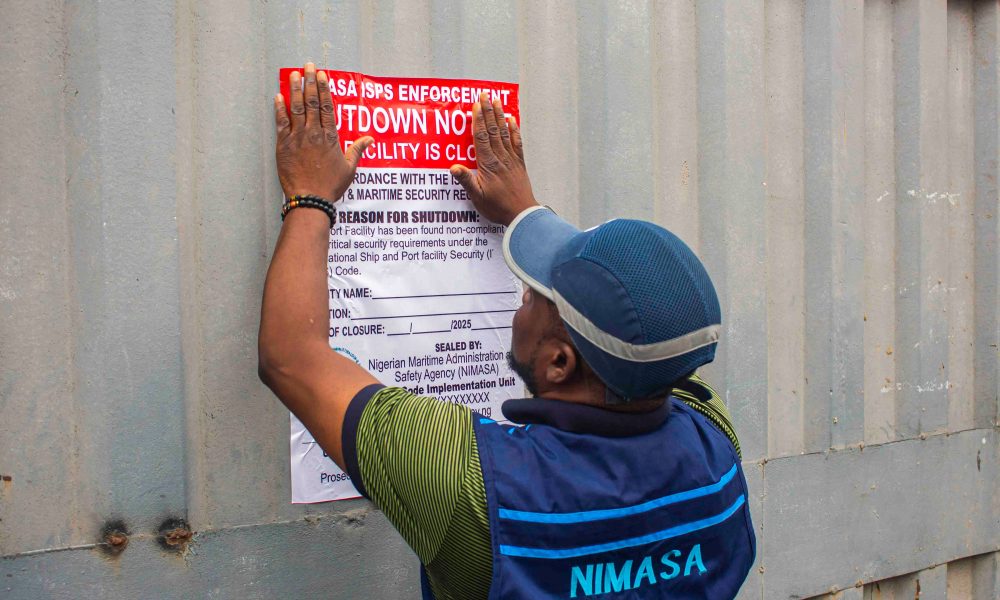 ASA ISPS ENFORCEMENT
UTDOWN NOT
FACILITY IS CLO
CCORDANCE WITH THE IS
& MARITIME SECURITY REG
REASON FOR SHUTDOWN:
ort Facility has been found non-compliant
ritical security requirements under the
ational Ship and Port facility Security (I
) Code.
ITY NAME:
TION:
OF CLOSURE: ___/___/2025
SEALED BY:
Nigerian Maritime Administration
Safety Agency (NIMASA)
Code Implementation Unit
XXXXXXXX
ov.ng
Prosec
NIMASA